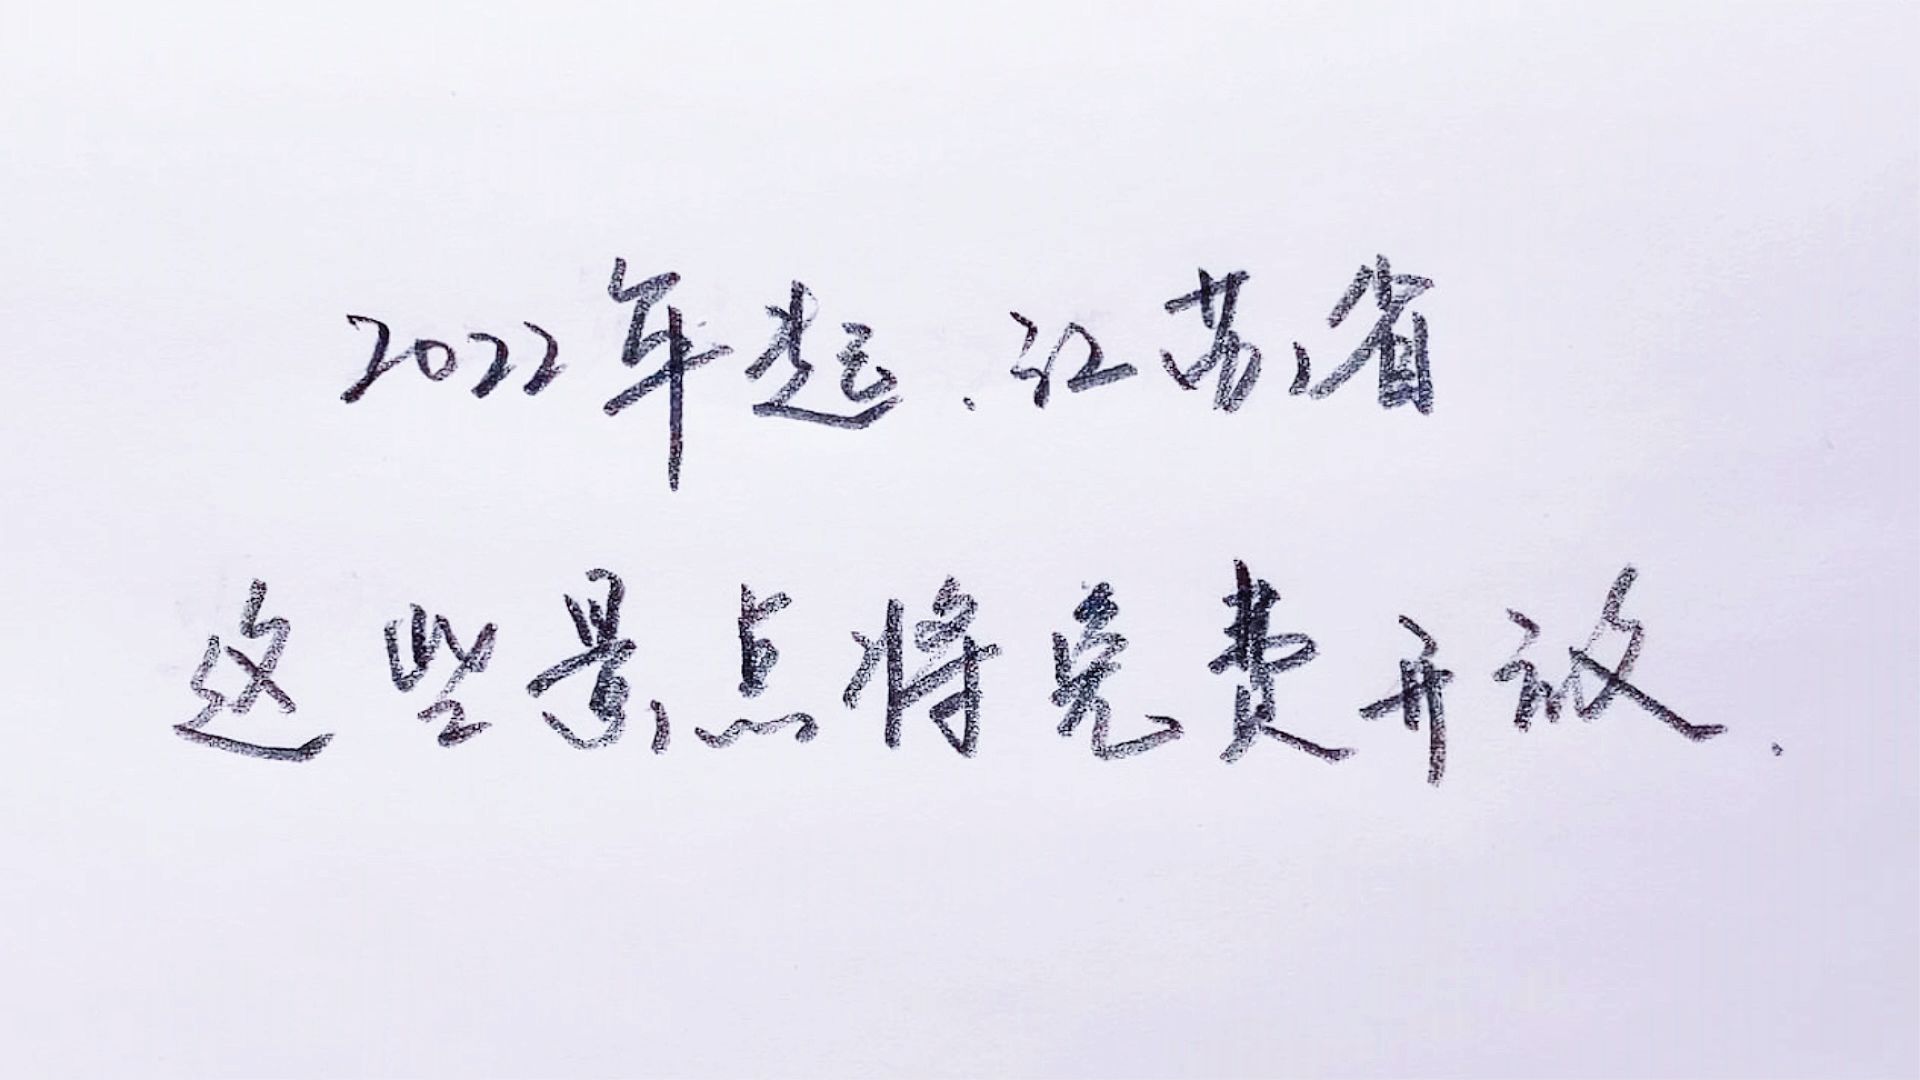 2022年起.江苏省
这些景点将免费开放.